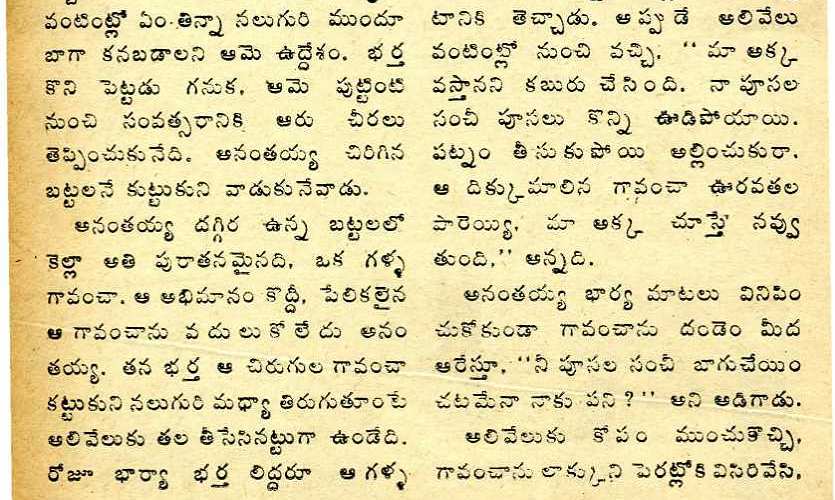 వంటింట్లో ఏం తిన్నా నలుగురి ముందూ
బాగా కనబడాలని ఆమె ఉద్దేశం. భర్త
కొని పెట్టడు గనుక, ఆమె పుట్టింటి
నుంచి సంవత్సరానికి ఆరు చీరలు
తెప్పించుకునేది. అనంతయ్య చిరిగిన
బట్టలనే కుట్టుకుని వాడుకునేవాడు.
అనంతయ్య దగ్గిర ఉన్న బట్టలలో
కెల్లా అతి పురాతనమైనది, ఒక గళ్ళ
గావంచా. ఆ అభిమానం కొద్దీ, పేలికలైన
ఆ గావంచాను వదులుకోలేదు అనం
తయ్య. తన భర్త ఆ చిరుగుల గావంచా
కట్టుకుని నలుగురి మధ్యా తిరుగుతూంటే
అలివేలుకు తల తీసేసినట్టుగా ఉండేది.
రోజూ భార్యా భర్త లిద్దరూ ఆ గళ్ళ
టానికి తెచ్చాడు. అప్పుడే అలివేలు
వంటింట్లో నుంచి వచ్చి, ‘‘మా అక్క
వస్తానని కబురు చేసింది. నా పూసల
సంచీ పూసలు కొన్ని ఊడిపోయాయి.
పట్నం తీసుకుపోయి అల్లించుకురా.
ఆ దిక్కుమాలిన గావంచా ఊరవతల
పారెయ్యి, మా అక్క చూస్తే నవ్వు
తుంది,’’ అన్నది.
అనంతయ్య భార్య మాటలు వినిపిం
చుకోకుండా గావంచాను దండెం మీద
ఆరేస్తూ, ‘‘నీ పూసల సంచీ బాగుచేయిం
చటమేనా నాకు పని?’’ అని అడిగాడు.
అలివేలుకు కోపం ముంచుకొచ్చి,
గావంచాను లాక్కుని పెరట్లోకి విసిరివేసి,